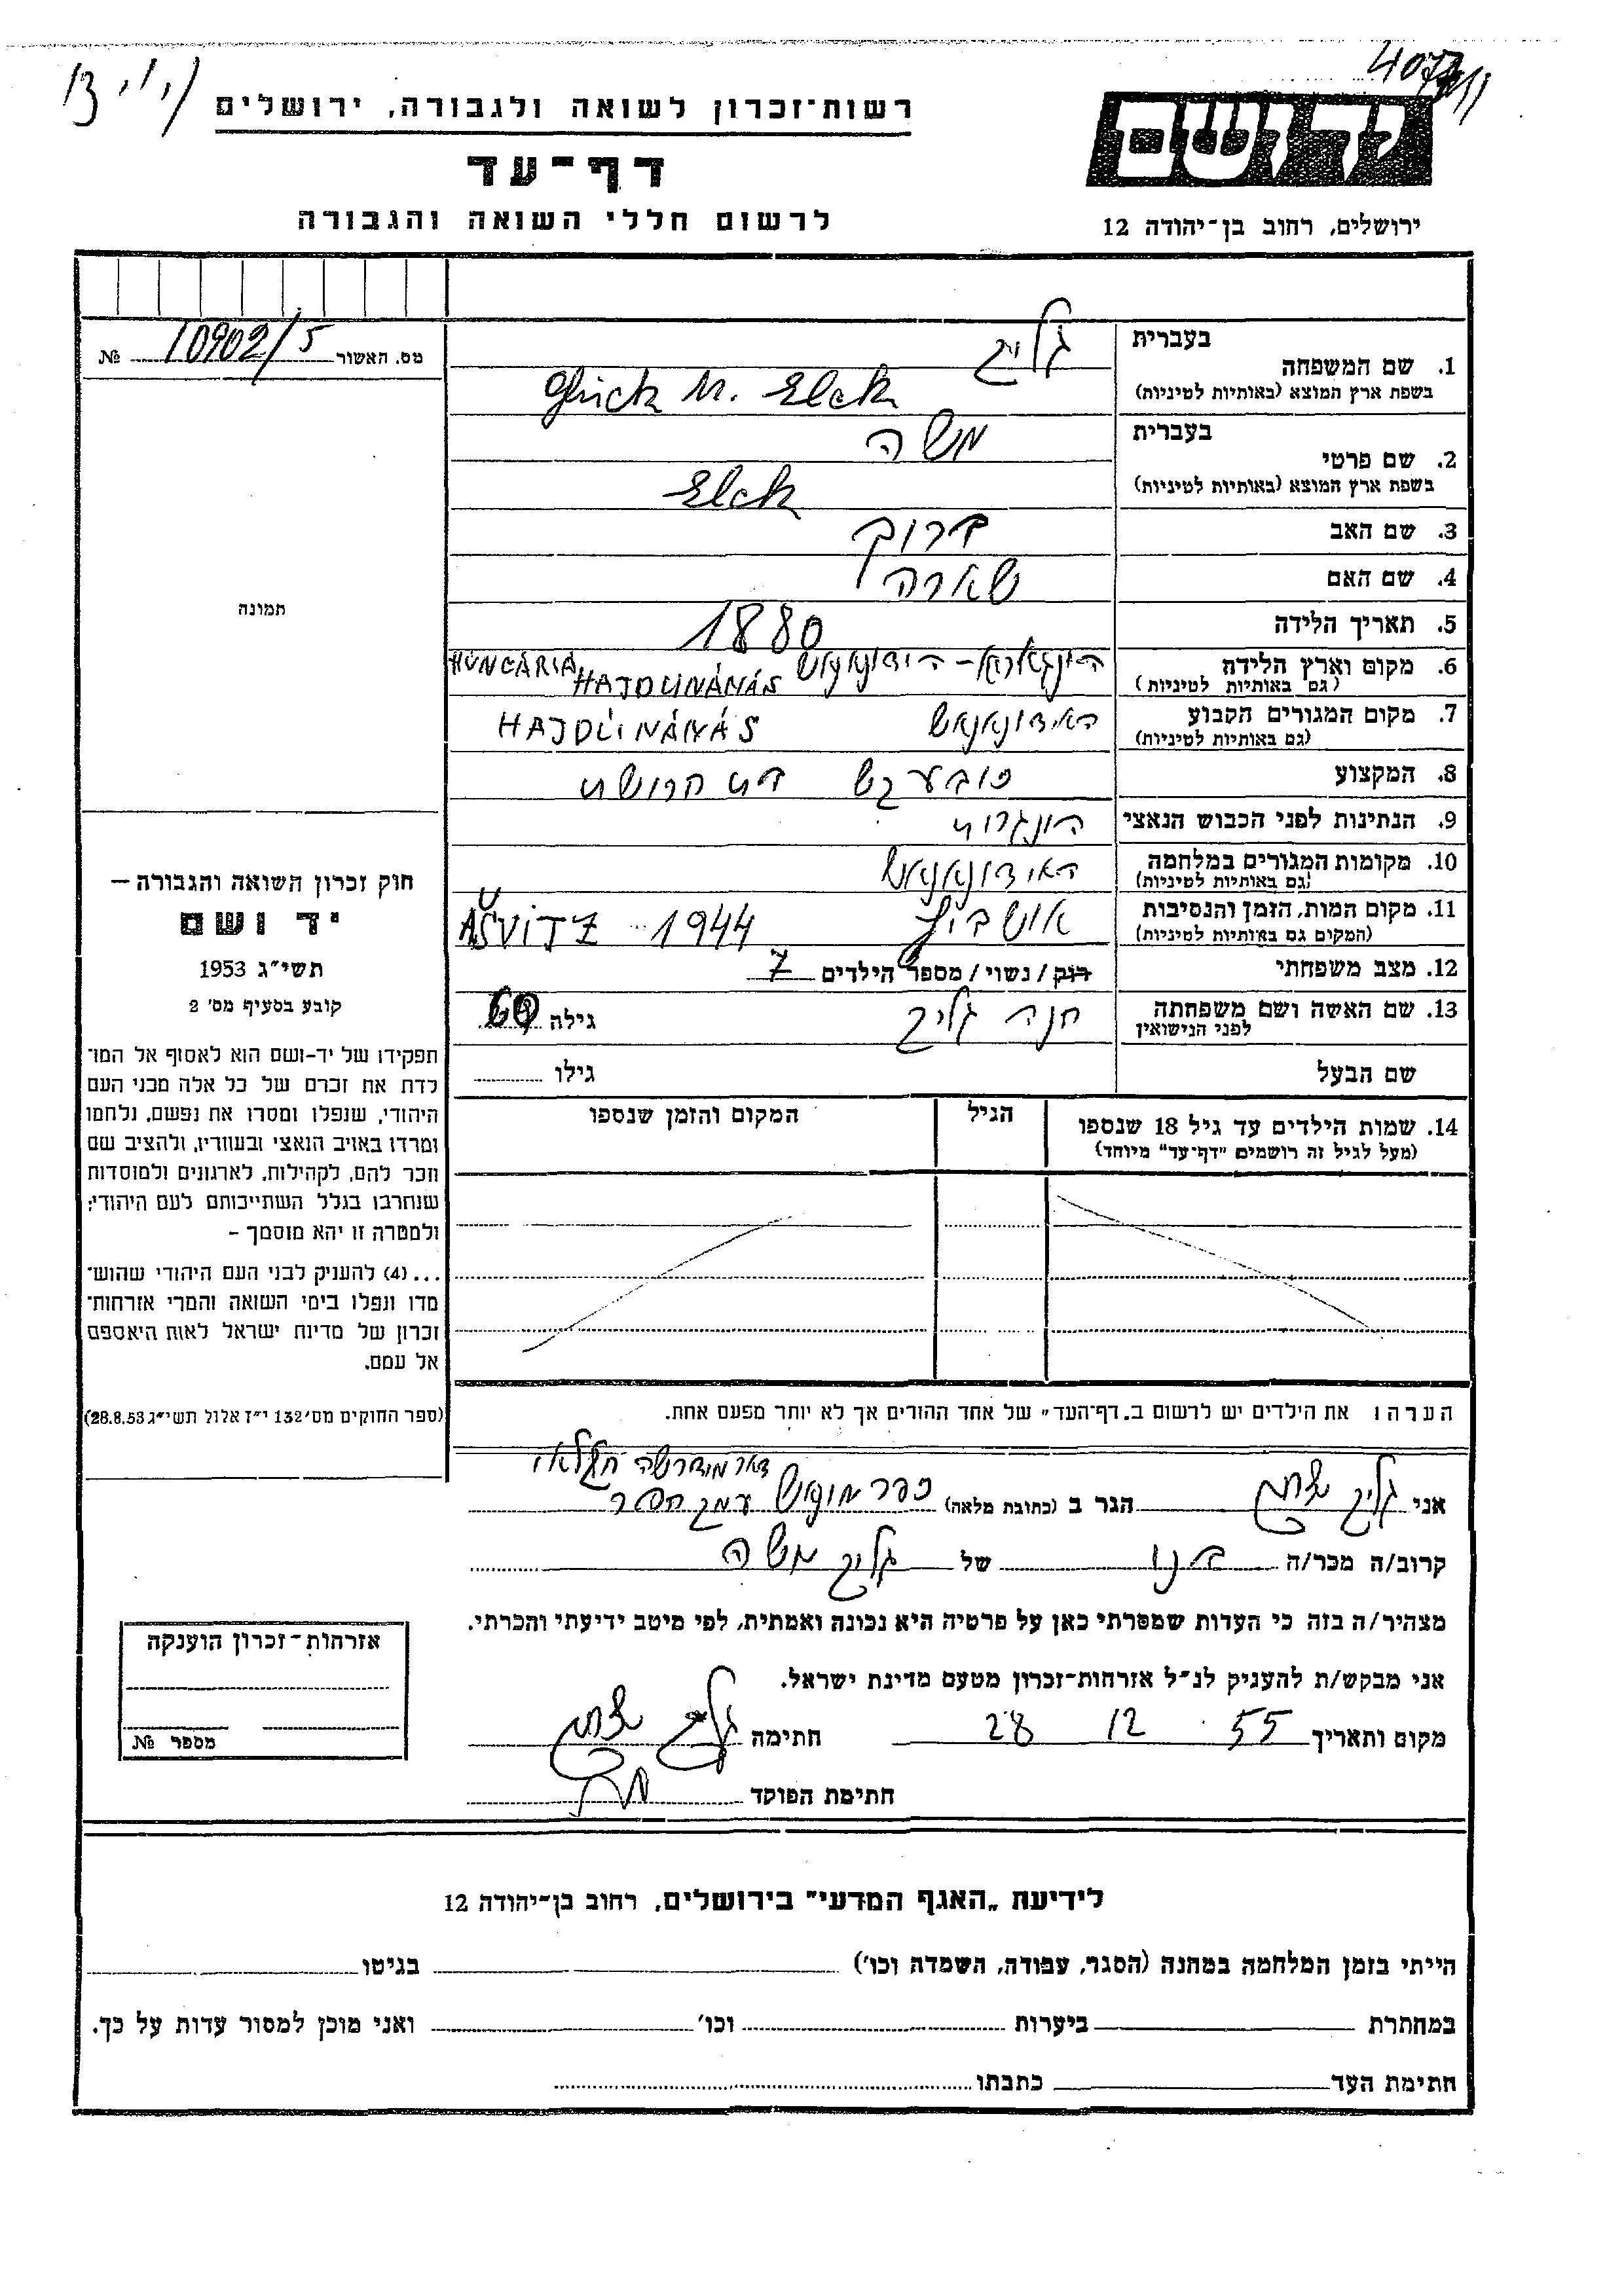 רשות־זכרון לשואה ולגבורה, ירושלים
דף־עד
לרשום חללי השואה והגבורה
ידושם
ירושלים, רחוב בן־יהודה 12
מס. האשור 10902/5 №
בעברית
1. שם המשפחה גליק
בשפת ארץ המוצא (באותיות לטיניות) Glück M. Elek
בעברית
2. שם פרטי משה
בשפת ארץ המוצא (באותיות לטיניות) Elek
3. שם האב ברוך
4. שם האם שארה
5. תאריך הלידה 1880
6. מקום וארץ הלידה
(גם באותיות לטיניות) HUNGÁRIA HAJDUNÁNÁS
7. מקום המגורים הקבוע האידונאנאש HAJDÚNÁNÁS
(גם באותיות לטיניות)
8. המקצוע בית חרושת
9. הנתינות לפני הכבוש הנאצי הונגרית
10. מקומות המגורים במלחמה האידונאנאש
(גם באותיות לטיניות)
11. מקום המות, הזמן והנסיבות אושביץ 1944 AŠVITZ
(המקום גם באותיות לטיניות)
12. מצב משפחתי רוק / נשוי / מספר הילדים 7
13. שם האשה ושם משפחתה חנה גליק גילה 60
לפני הנישואין
שם הבעל גילו
14. שמות הילדים עד גיל 18 שנספו הגיל המקום והזמן שנספו
(מעל לגיל זה רושמים "דף־עד" מיוחד)
תמונה
חוק זכרון השואה והגבורה —
יד ושם
תשי"ג 1953
קובע בסעיף מס' 2
תפקידו של יד-ושם הוא לאסוף אל המו־
לדת את זכרם של כל אלה מבני העם
היהודי, שנפלו ומסרו את נפשם, נלחמו
ומרדו באויב הנאצי ובעוזריו, ולהציב שם
וזכר להם, לקהילות, לארגונים ולמוסדות
שנחרבו בגלל השתייכותם לעם היהודי;
ולמטרה זו יהא מוסמך –
...(4) להעניק לבני העם היהודי שהוש־
מדו ונפלו בימי השואה והמרי אזרחות־
זכרון של מדינת ישראל לאות היאספם
אל עמם.
(ספר החוקים מס' 132 י"ז אלול תשי"ג 28.8.53)
הערה: את הילדים יש לרשום ב„דף־העד" של אחד ההורים אך לא יותר מפעם אחת.
אני גליק הגר ב (כתובת מלאה) כפר מונאש עמק חפר
קרוב/ה מכר/ה בנו של גליק משה
מצהיר/ה בזה כי העדות שמסרתי כאן על פרטיה היא נכונה ואמתית, לפי מיטב ידיעתי והכרתי.
אני מבקש/ת להעניק לנ"ל אזרחות־זכרון מטעם מדינת ישראל.
מקום ותאריך 28 12 55 חתימה גליק
חתימת הפוקד
אזרחות־זכרון הוענקה
מספר №
לידיעת „האגף המדעי" בירושלים, רחוב בן־יהודה 12
הייתי בזמן המלחמה במחנה (הסגר, עבודה, השמדה וכו') בגיטו
במחתרת ביערות וכו' ואני מוכן למסור עדות על כך.
חתימת העד כתבתו